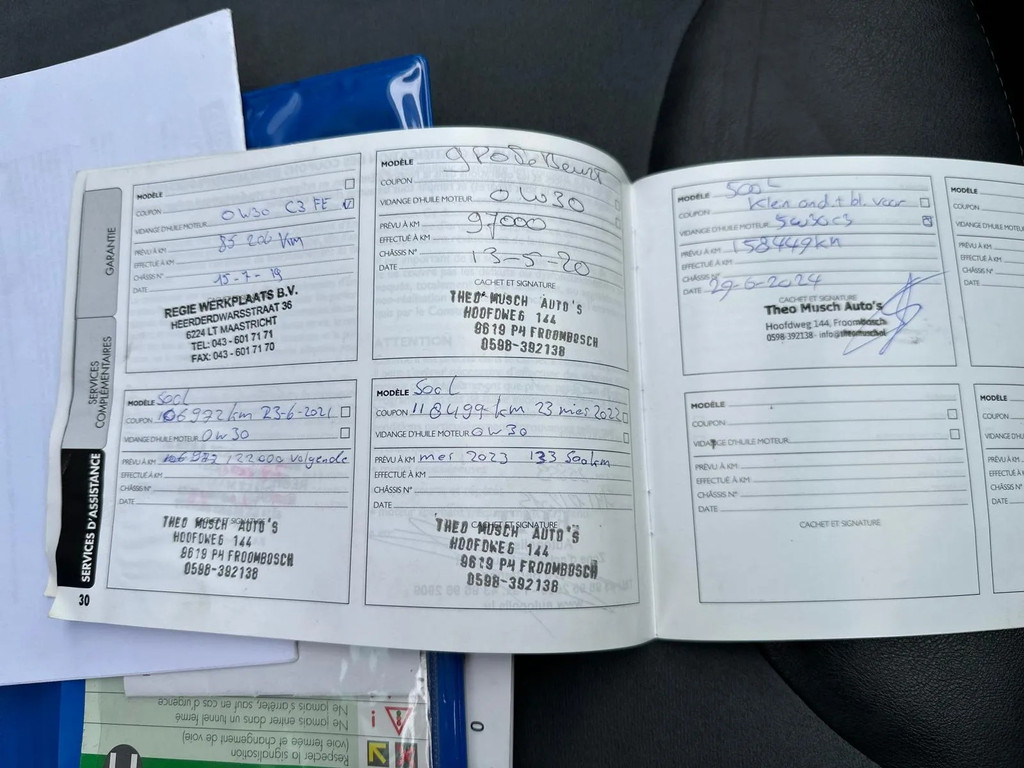 GARANTIE
SERVICES
COMPLÉMENTAIRES
SERVICES D'ASSISTANCE
30
MODÈLE
COUPON
VIDANGE D'HUILE MOTEUR 0W30 C3 FE
PRÉVU À KM 85 200 km
EFFECTUÉ À KM
CHÂSSIS N°
DATE 15-7-19
REGIE WERKPLAATS B.V.
HEERDERDWARSSTRAAT 36
6224 LT MAASTRICHT
TEL: 043 - 601 71 71
FAX: 043 - 601 71 70
MODÈLE
COUPON
VIDANGE D'HUILE MOTEUR 0W30
PRÉVU À KM 97000
EFFECTUÉ À KM
CHÂSSIS N°
DATE 13-5-20
CACHET ET SIGNATURE
THEO MUSCH AUTO'S
HOOFDWEG 144
9619 PH FROOMBOSCH
0598-392138
MODÈLE 500L
COUPON 106972 km 23-6-2021
VIDANGE D'HUILE MOTEUR 0W30
PRÉVU À KM 122000 volgende
EFFECTUÉ À KM
CHÂSSIS N°
DATE
THEO MUSCH AUTO'S
HOOFDWEG 144
9619 PH FROOMBOSCH
0598-392138
MODÈLE 500L
COUPON 118499 km 23 mei 2022
VIDANGE D'HUILE MOTEUR 0W30
PRÉVU À KM mei 2023 133 500km
EFFECTUÉ À KM
CHÂSSIS N°
DATE
CACHET ET SIGNATURE
THEO MUSCH AUTO'S
HOOFDWEG 144
9619 PH FROOMBOSCH
0598-392138
MODÈLE 500L
COUPON Klein ond. t bl. voor
VIDANGE D'HUILE MOTEUR 5W30C3
PRÉVU À KM 158449km
EFFECTUÉ À KM
CHÂSSIS N°
DATE 29-6-2024
CACHET ET SIGNATURE
Theo Musch Auto's
Hoofdweg 144, Froombosch
0598-392138 - info@theomusch.nl
MODÈLE
COUPON
VIDANGE D'HUILE MOTEUR
PRÉVU À KM
EFFECTUÉ À KM
CHÂSSIS N°
DATE
CACHET ET SIGNATURE
MODÈLE
COUPON
PRÉVU À KM
EFFECTUÉ À
CHÂSSIS N°
DATE
MODÈLE
COUPON
VIDANGE D'H
PRÉVU À KM
EFFECTUÉ À
CHÂSSIS N°
DATE
Respecter la signalisation
(voie fermée et changement de voie)
Ne jamais entrer dans un tunnel fermé
Ne jamais s'arrêter, sauf en cas d'urgence